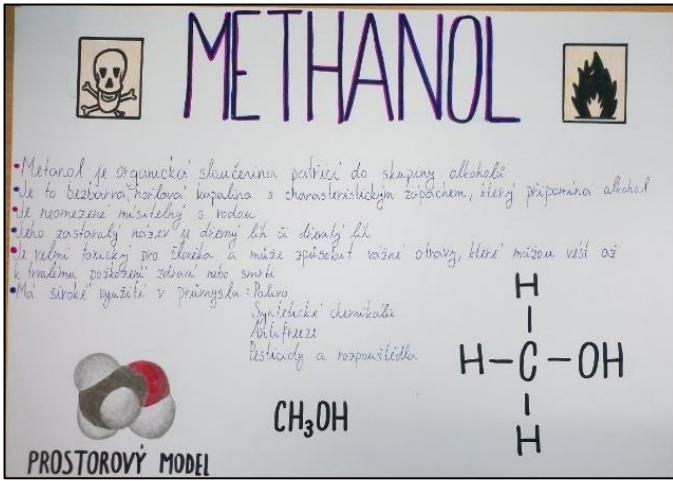 METHANOL
• Metanol je organická sloučenina patřící do skupiny alkoholů
• Je to bezbarvá, hořlavá kapalina s charasteristickým zápachem, který připomíná alkohol
• Je neomezeně mísitelný s vodou
• Jeho zastaralý název je dřevný líh či dřevitý líh
• Je velmi toxický pro člověka a může způsobit vážné otravy, které můžou vést až
k trvalému poškození zdraví nebo smrti
• Má široké využití v průmyslu: Paliva
Syntetické chemikálie
Antifreeze
Pesticidy a rozpouštědla
H
H-C-OH
H
CH₃OH
PROSTOROVÝ MODEL